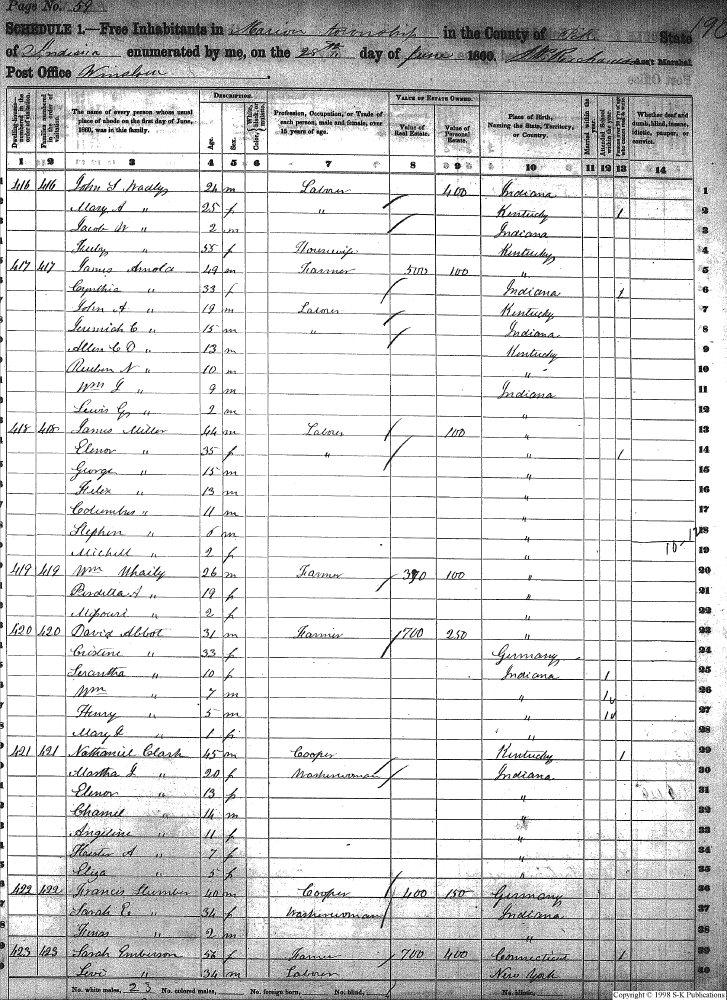 Page No. 59
SCHEDULE 1.—Free Inhabitants in Marion township in the County of State
of Indiana enumerated by me, on the 28th day of June 1860. Ass't Marshal
Post Office Winslow
DESCRIPTION. VALUE OF ESTATE OWNED.
Dwelling-houses—numbered in the order of visitation.
Families numbered in the order of visitation.
The name of every person whose usual place of abode on the first day of June, 1860, was in this family.
Age.
Sex.
Color, White, black, or mulatto.
Profession, Occupation, or Trade of each person, male and female, over 15 years of age.
Value of Real Estate.
Value of Personal Estate.
Place of Birth, Naming the State, Territory, or Country.
Married within the year.
Attended School within the year.
Whether deaf and dumb, blind, insane, idiotic, pauper, or convict.
1 2 3 4 5 6 7 8 9 10 11 12 13 14
416 416 John S 24 m Laborer 400 Indiana 1
Mary A " 25 f " Kentucky 1 2
Jacob W " 2 m Indiana 3
" 55 f Housewife Kentucky 4
417 417 James Arnold 49 m Farmer 500 100 " 5
Cynthia " 33 f Indiana 1 6
John A " 19 m Laborer Kentucky 7
Jeremiah C " 15 m " Indiana 8
Allen C D " 13 m Kentucky 9
Reuben N " 10 m " 10
Wm J " 9 m Indiana 11
Lewis G " 2 m " 12
418 418 James Miller 44 m Laborer 100 " 13
Elenor " 35 f " " 1 14
George " 15 m " 15
Felix " 13 m " 16
Columbus " 11 m " 17
Stephen " 6 m " 18
Michell " 2 f " 19
419 419 Wm Whaily 26 m Farmer 100 " 20
Perdetta A " 19 f " 21
Missouri " 2 f " 22
420 420 David Abbot 31 m Farmer 700 250 " 23
Cristine " 33 f Germany 24
" 10 f Indiana 1 25
Wm " 7 m " 1 26
Henry " 5 m " 1 27
Mary E " 1 f " 28
421 421 Nathaniel Clark 45 m Cooper Kentucky 1 29
Martha J " 20 f Washerwoman Indiana 30
Elenor " 13 f " 31
" 14 m " 32
Angeline " 11 f " 33
A " 7 f " 34
Eliza " 5 f " 35
422 422 Francis 40 m Cooper 400 150 Germany 36
Sarah E. " 34 f Washerwoman Indiana 37
" 2 m " 38
423 423 Sarah Emberson 56 f Farmer 700 400 Connecticut 1 39
Levi " 34 m Laborer New York 40
No. white males, 23 No. colored males, No. foreign born, No. blind,
Copyright © 1998 S-K Publications